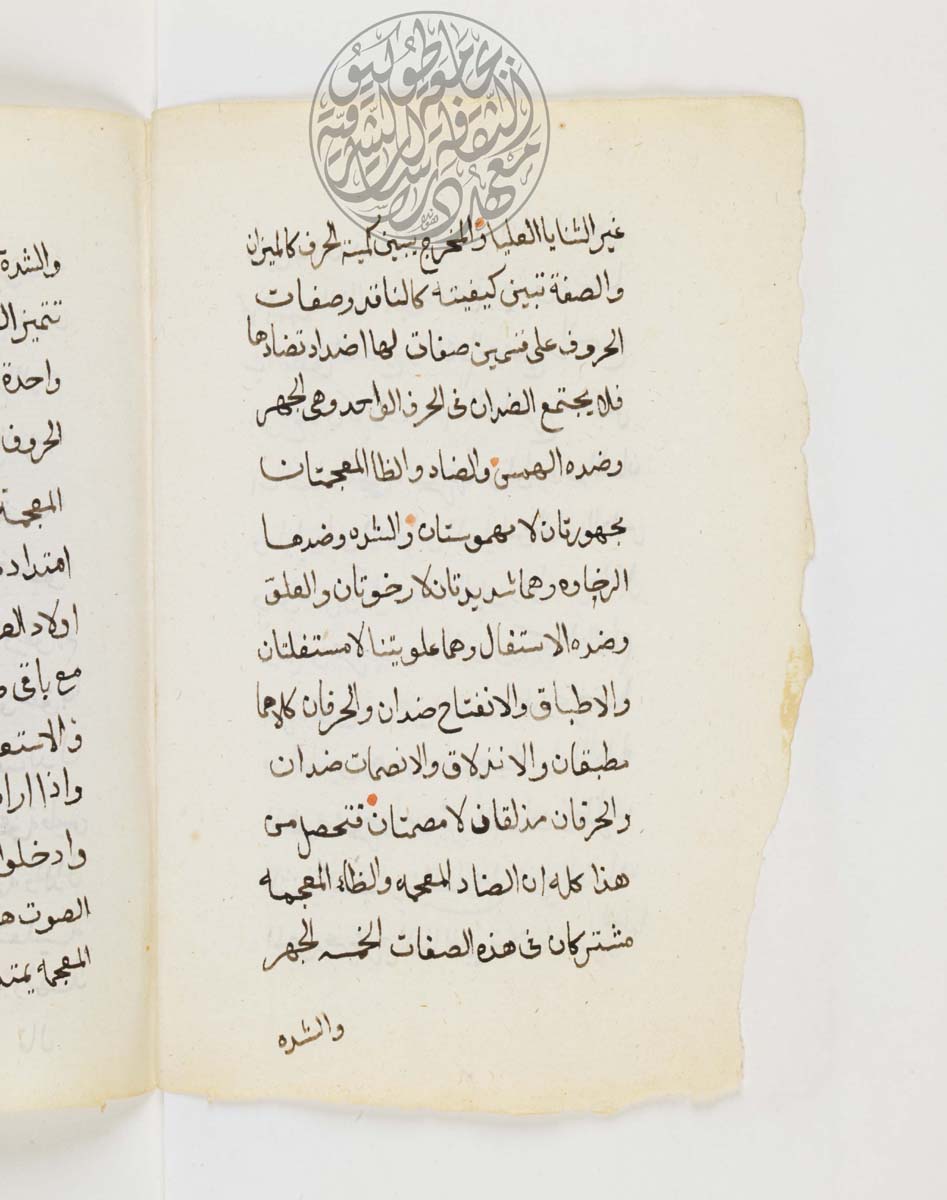 غير الثنايا العليا والمخرج يبين كمية الحرف كالميزان
والصفة تبين كيفيته كالناقد وصفات
الحروف على قسمين صفات لها اضداد تضادها
فلا يجتمع الضدان فى الحرف الواحد وهى الجهر
وضده الهمس والضاد والظا المعجمتان
مجهورتان لا مهموستان والشده وضدها
الرخاوه وهما شديدتان لا رخوتان والعلو
وضده الاستفال وهما علويتنا لا مستفلتان
والاطباق والانفتاح ضدان والحرفان كلاهما
مطبقان والانذلاق والانصمات ضدان
والحرفان مذلقان لا مصمتان فتحصل من
هذا كله ان الضاد المعجمه والظاء المعجمه
مشتركان فى هذه الصفات الخمسه الجهر
والشده
والشدة
تتميز
واحدة
الحروف
المعجمة
امتداد
اولاد
مع باقى
واذا
وادخلوا
الصوت
المعجمه
معهد دراسات الثقافة الشرقية
بجامعة طوكيو